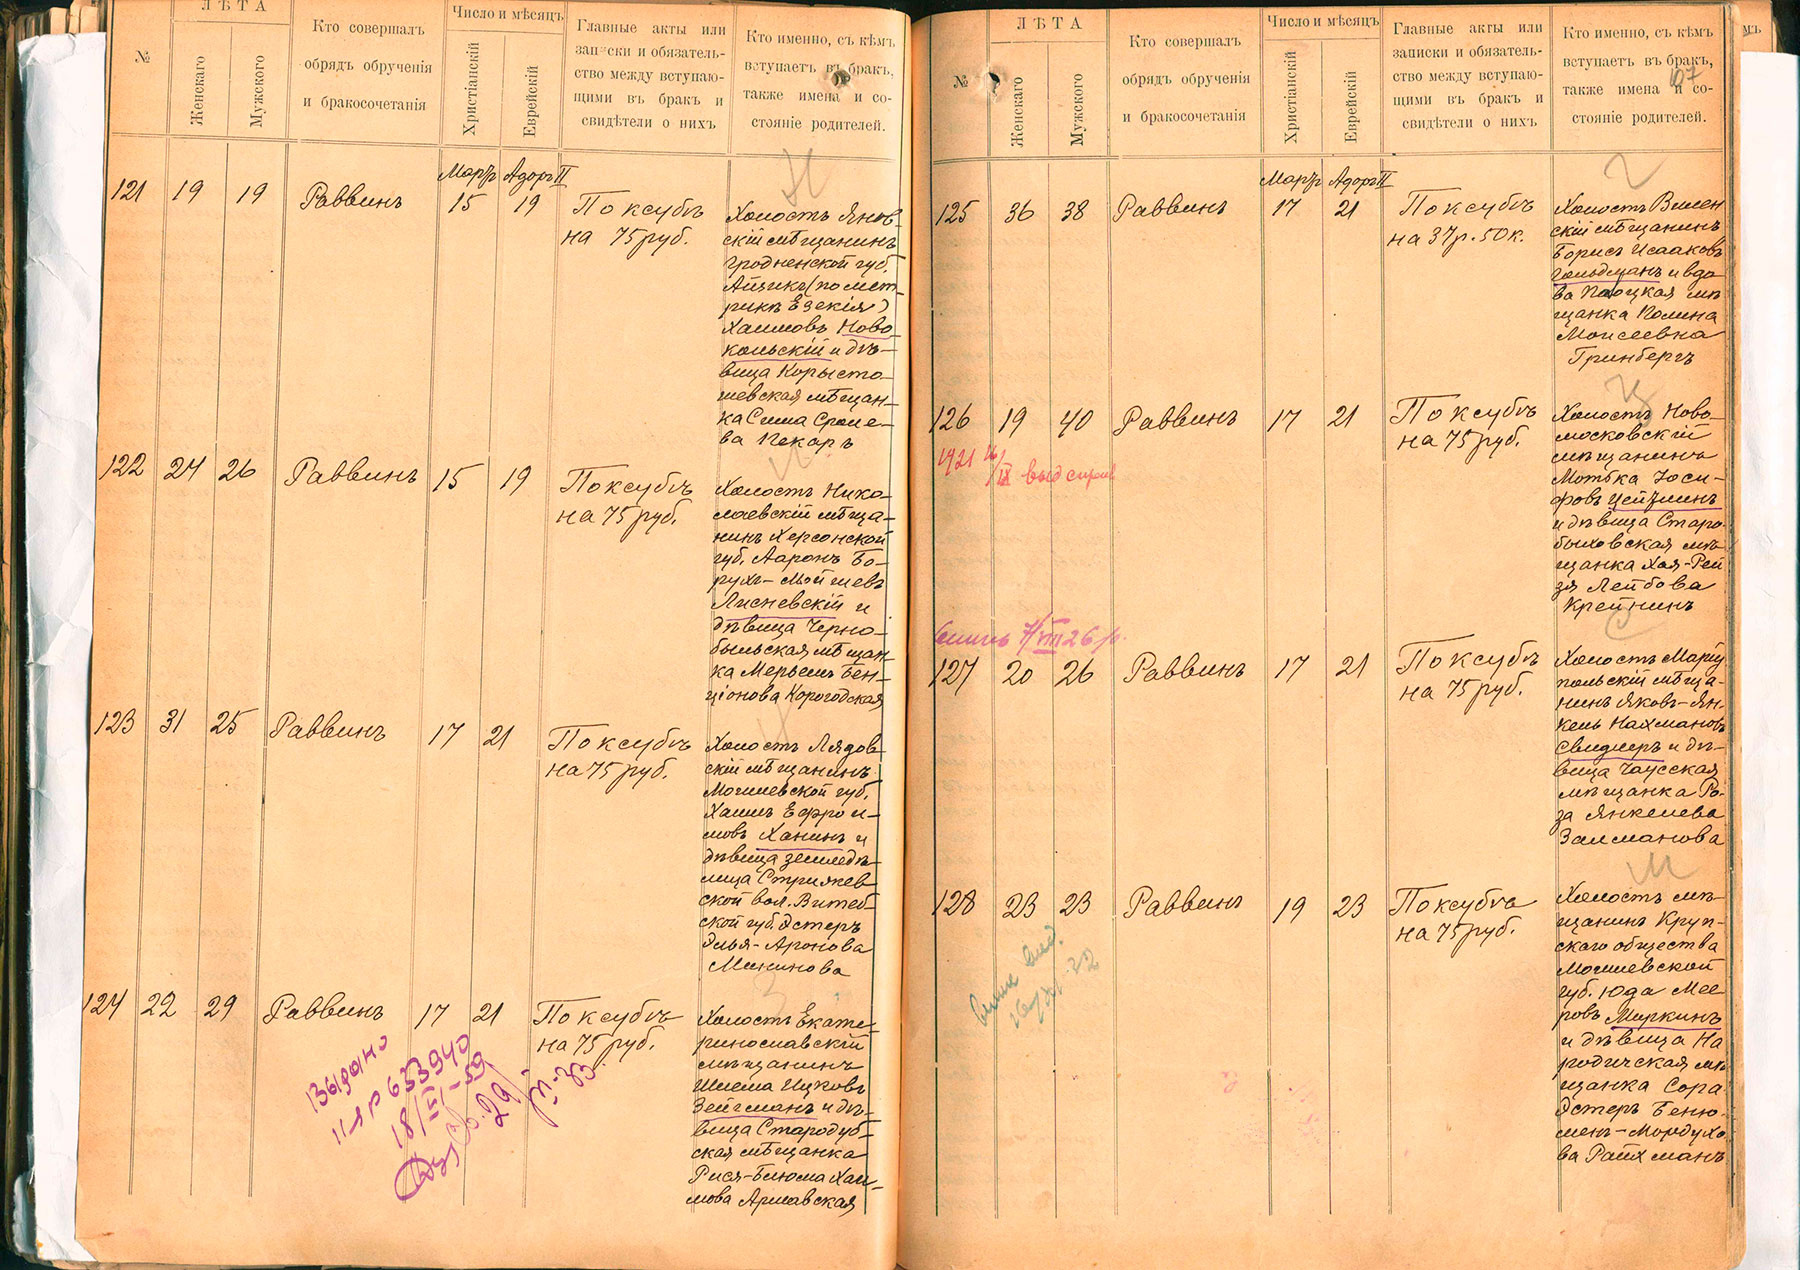 №
ЛѢТА
Женскаго
Мужского
Кто совершалъ
обрядъ обрученія
и бракосочетанія
Число и мѣсяцъ
Христіанскій
Еврейскій
Главные акты или
записки и обязатель-
ство между вступаю-
щими въ бракъ и
свидѣтели о нихъ
Кто именно, съ кѣмъ
вступаетъ въ бракъ,
также имена и со-
стояніе родителей.
Мартъ Адоръ II
121 19 19 Раввинъ 15 19 По ксубѣ
на 75 руб.
Холостъ Янов-
скій мѣщанинъ
Гродненской губ.
Айзикъ (по мет-
рикѣ Езекія)
Хаимовъ Ново-
кольскій и дѣ-
вица Корысто-
шевская мѣщан-
ка Сима Сроле-
ва Пекаръ
122 24 26 Раввинъ 15 19 По ксубѣ
на 75 руб.
Холостъ Нико-
лаевскій мѣща-
нинъ Херсонской
губ. Ааронъ Бо-
рухъ-Мойшевъ
Лисневскій и
дѣвица Черно-
быльская мѣщан-
ка Мерьемъ Бен-
ціонова Корогодская
123 31 25 Раввинъ 17 21 По ксубѣ
на 75 руб.
Холостъ Лядов-
скій мѣщанинъ
Могилевской губ.
Хаимъ Ефрои-
мовъ Ханинъ и
дѣвица земледѣ-
лица Стрижев-
ской вол. Витеб-
ской губ. Эстеръ
Элья-Аронова
Минимова
124 22 29 Раввинъ 17 21 По ксубѣ
на 75 руб.
Холостъ Екате-
ринославскій
мѣщанинъ
Шлема Ицковъ
Зейгманъ и дѣ-
вица Стародуб-
ская мѣщанка
Рися-Блюма Хаи-
мова Аршавская
Видано
633940
18/III-59
29
№
ЛѢТА
Женскаго
Мужского
Кто совершалъ
обрядъ обрученія
и бракосочетанія
Число и мѣсяцъ
Христіанскій
Еврейскій
Главные акты или
записки и обязатель-
ство между вступаю-
щими въ бракъ и
свидѣтели о нихъ
Кто именно, съ кѣмъ
вступаетъ въ бракъ,
также имена и со-
стояніе родителей.
Мартъ Адоръ II
125 36 38 Раввинъ 17 21 По ксубѣ
на 37 р. 50 к.
Холостъ Вилен
скій мѣщанинъ
Борисъ Исааковъ
Гольдманъ и вдо-
ва Плоцкая мѣ
щанка Полина
Моисеевна
Гринбергъ
126 19 40 Раввинъ 17 21 По ксубѣ
на 75 руб.
Холостъ Ново-
московскій
мѣщанинъ
Мотька Іоси-
фовъ Цейтлинъ
и дѣвица Старо-
быховская мѣ-
щанка Хая-Рей
зя Лейбова
Крейнинъ
1921
127 20 26 Раввинъ 17 21 По ксубѣ
на 75 руб.
Холостъ Маріу
польскій мѣща-
нинъ Яковъ-Ян-
кель Нахмановъ
Свидлеръ и дѣ-
вица Чаусская
мѣщанка Ро-
за Янкелева
Залманова
128 23 23 Раввинъ 19 23 По ксубѣ
на 75 руб.
Холостъ мѣ-
щанинъ Круп-
скаго общества
Могилевской
губ. Юда Мее
ровъ Маркинъ
и дѣвица На
родичская мѣ
щанка Сора
Эстеръ Беню-
минъ-Мордухо
ва Райхманъ